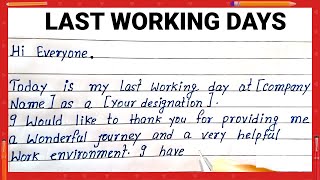 LAST WORKING DAYS
Hi Everyone.
Today is my last working day at [company
Name] as a [your designation].
I would like to thank you for providing me
a wonderful journey and a very helpful
work environment. I have